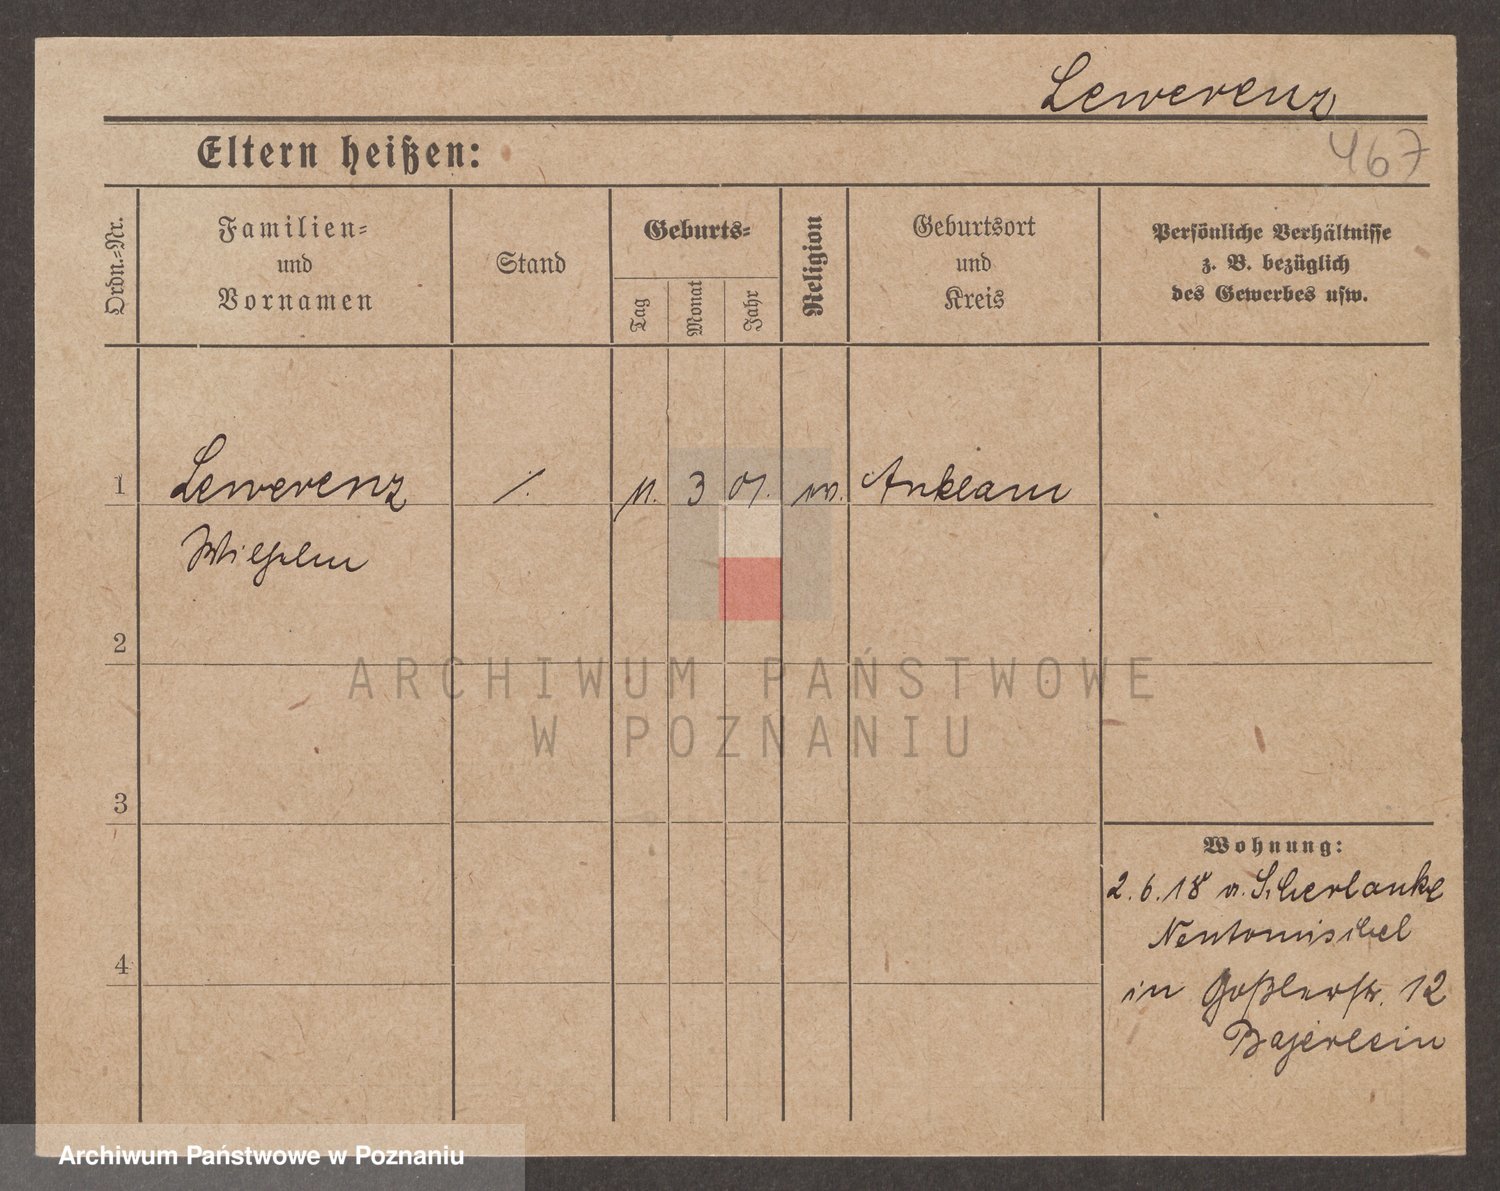 Lewerenz
467
Eltern heißen:
Ordn.-Nr.
Familien-
und
Vornamen
Stand
Geburts-
Tag
Monat
Jahr
Religion
Geburtsort
und
Kreis
Persönliche Verhältnisse
z. B. bezüglich
des Gewerbes usw.
1 Lewerenz 3 01. Anklam
Wilhelm
2
3
4
Wohnung:
2.6.18 v. Scherlanke
Neutomischel
in Goßlerstr. 12
Bajerlein
ARCHIWUM PAŃSTWOWE
W POZNANIU
Archiwum Państwowe w Poznaniu